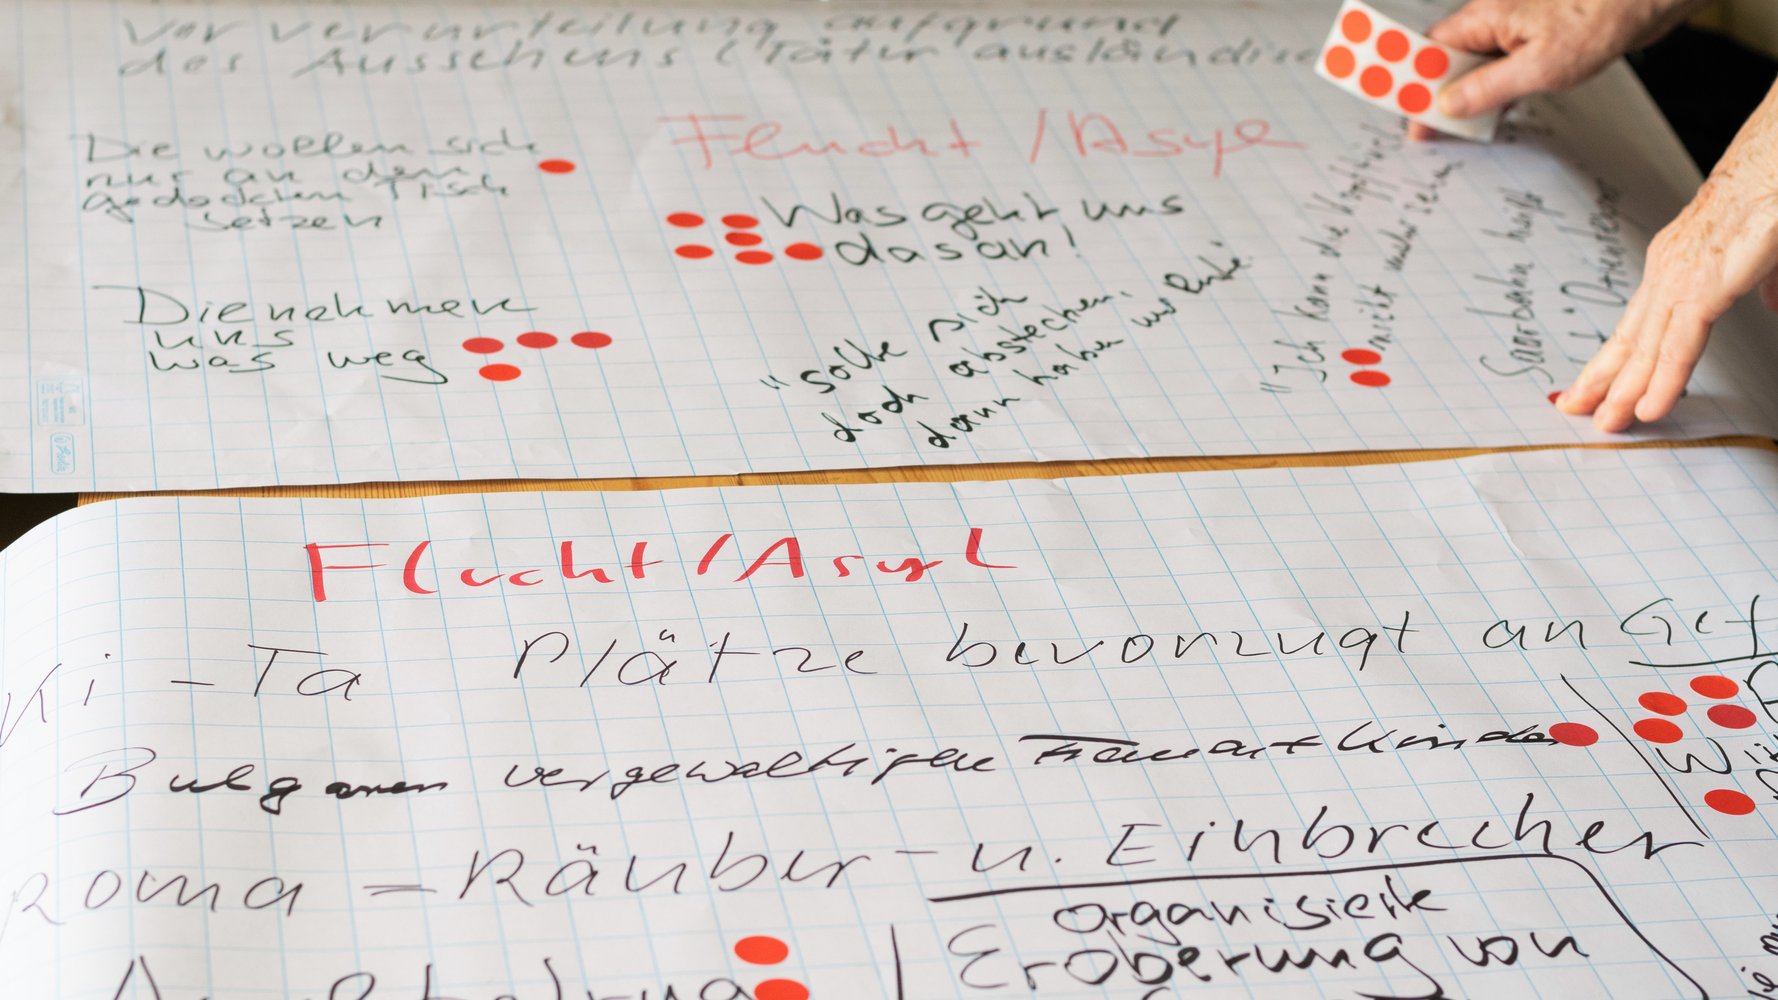 Vorverurteilung aufgrund
des Aussehens (Täter ausländisc
Flucht / Asyl
Die wollen sich
nur an den
gedeckten Tisch
setzen
Was geht uns
das an!
Die nehmen
uns
was weg
"Solle sich
doch abstechen,
dann haben wir Ruhe."
"Ich kann die
nicht mehr sehn"
Saarbahn heißt
Orientexpr
Flucht / Asyl
Ki-Ta Plätze bevorzugt an Gef
Bulgaren vergewaltigen Kinder
Roma = Räuber - u. Einbrecher
organisierte
Eroberung von
Wi